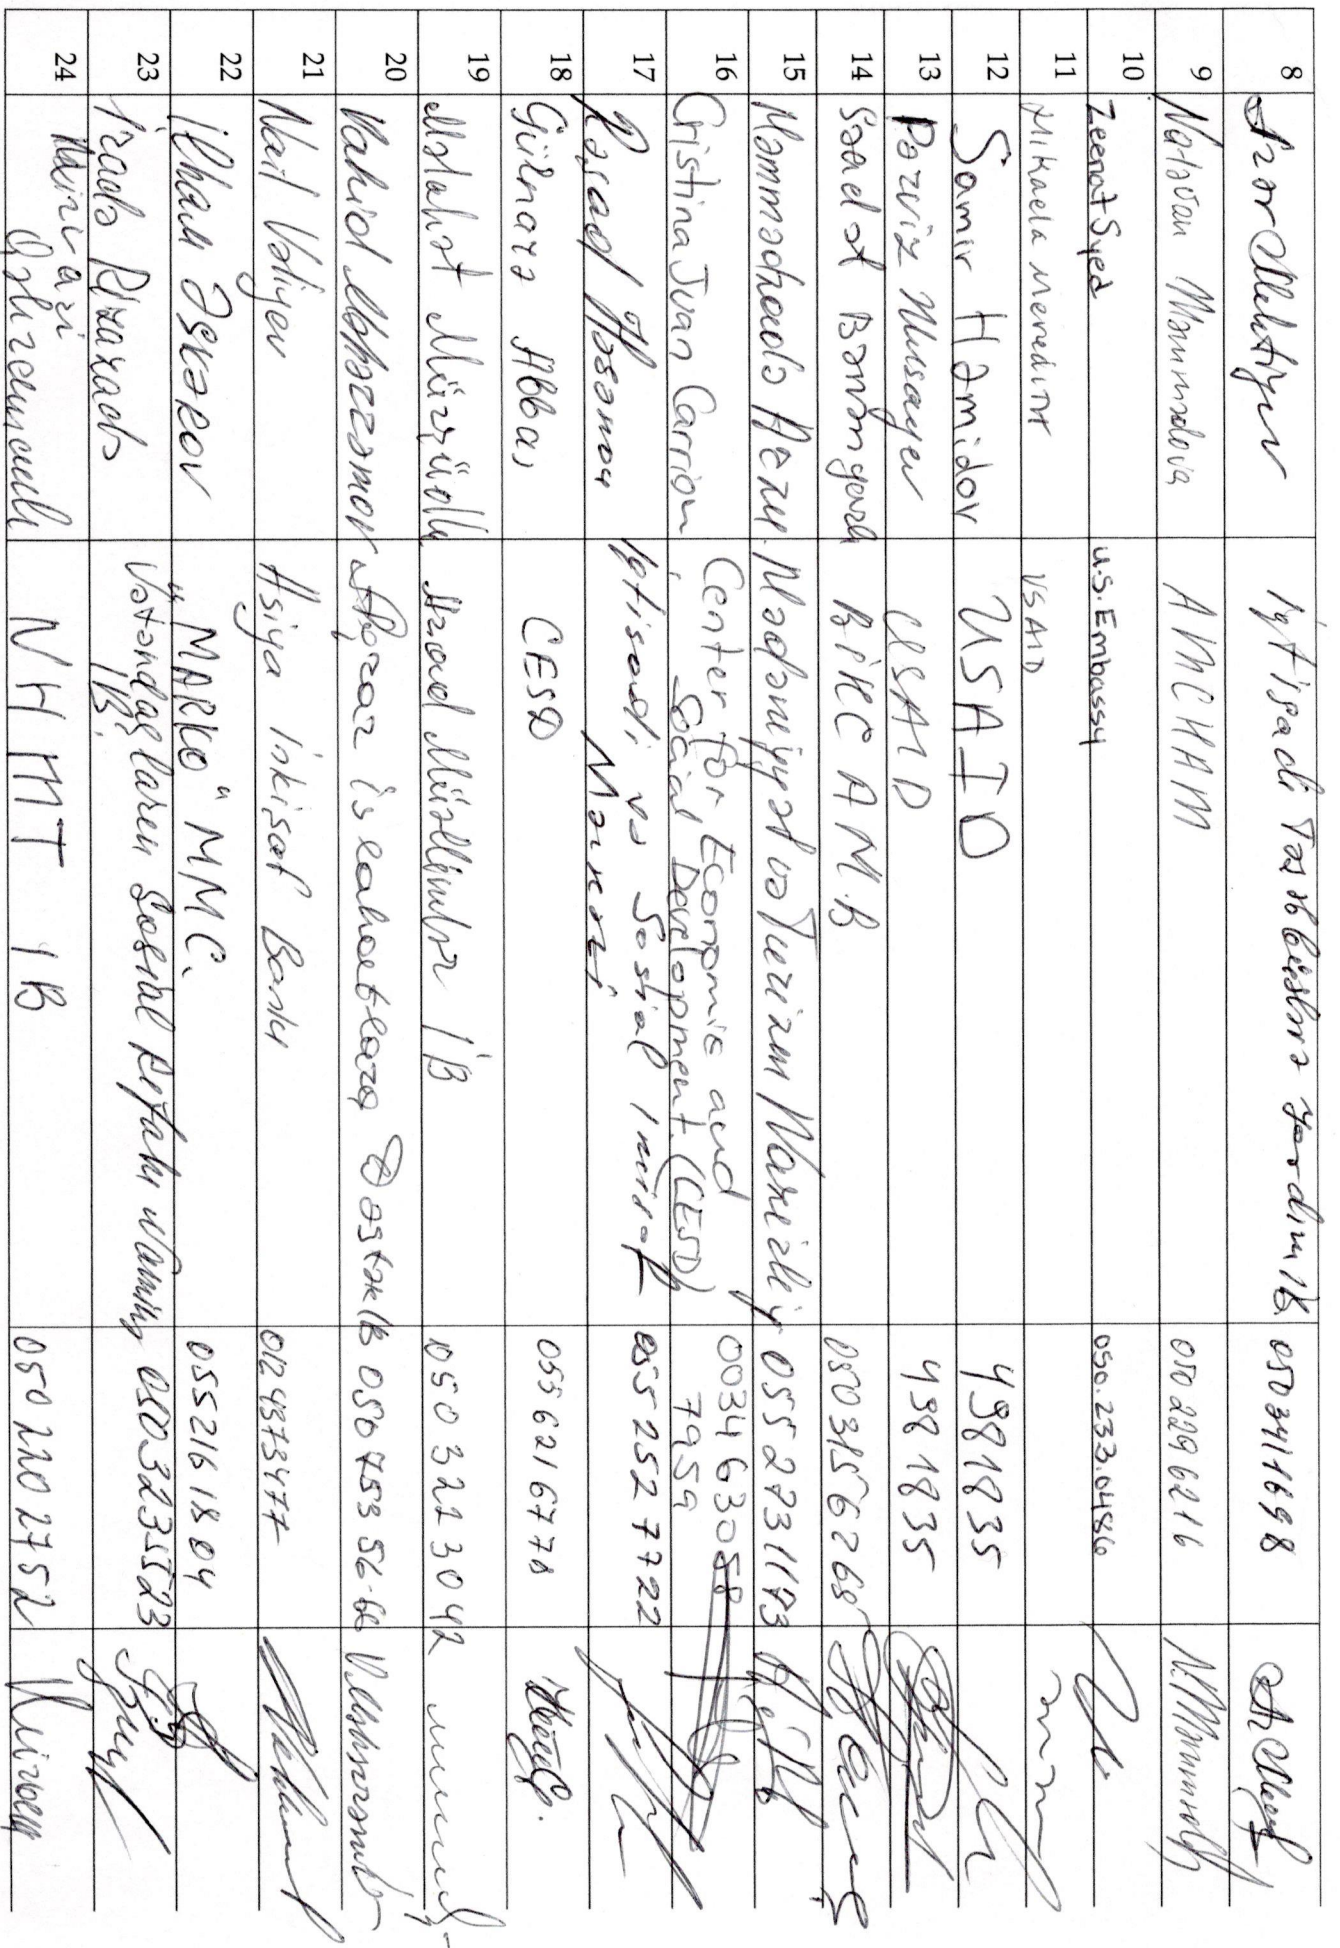 8 Azər Mehtiyev İqtisadi Təşəbbüslərə Yardım İB. 0503411698
9 Natəvan Məmmədova AMCHAM 050 2296216
10 Zeenat Syed U.S. Embassy 050.233.0486
11 Mikaela Meredith USAID
12 Samir Həmidov USAID 4981835
13 Pərviz Musayev USAID 498 1835
14 Səadət Bənənyarlı BİHC ANB 0503156268
15 Məmmədzadə Arzu Mədəniyyət və Turizm Nazirliyi 0552731173
16 Cristina Juan Carrion Center for Economic and
Social Development (CESD) 003463058
7959
17 Rəşad Həsənov İqtisadi və Sosial İnkişaf
Mərkəzi 055 252 7722
18 Gülnarə Abbas CESD 055 6216778
19 Mələhət Mürşüdlü Azad Müəllimlər İB 050 3273042
20 Vahid Məhərrəmov Aqrar islahatlara Dəstək İB 050 753 56 66
21 Nail Vəliyev Asiya İnkişaf Bankı 012 4373477
22 İlham Əsgərov "MARKO" MMC. 055 216 18 04
23 İradə Rizazadə Vətəndaşların Sosial Rifahı naminə
İB. 0503235523
24 Mirvari Qəhrəmanlı NHMT İB 050 220 2752